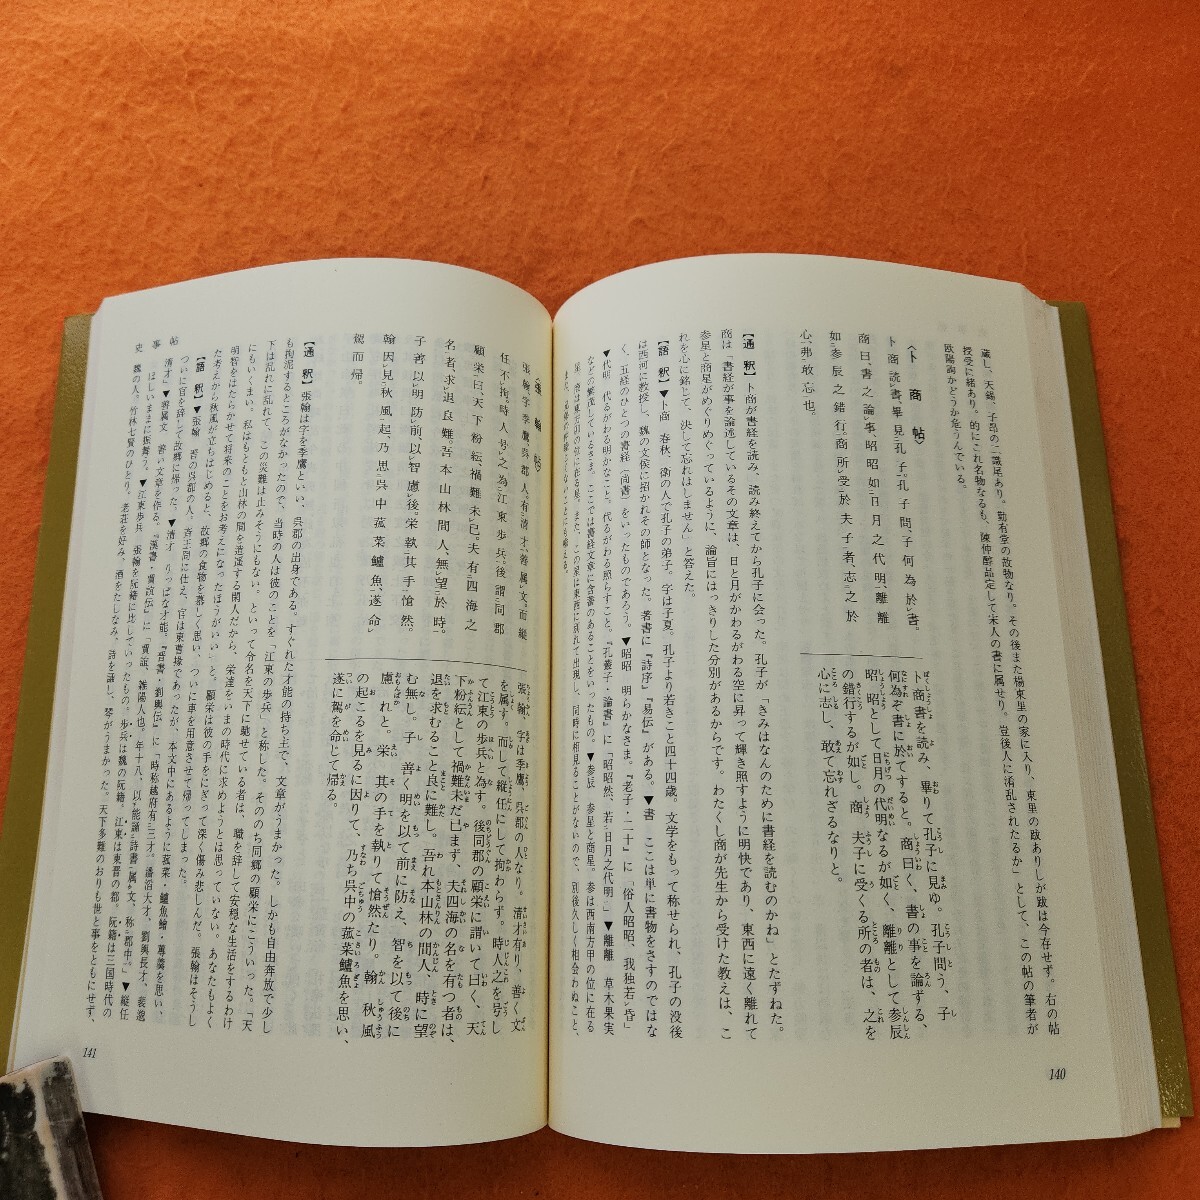 蔵し、天錫、子昂の二識尾あり。勤有堂の故物なり。その後また楊東里の家に入り、東里の跋ありしが跋は今存せず。右の帖
授受に緒あり。的にこれ名物なるも、陳仲醇品定して宋人の書に属せり。豈後人に淆乱されたるか」として、この帖の筆者が
欧陽詢かどうか危うんでいる。
〈卜商帖〉
卜商読書畢、見孔子。孔子問、子何為於書。
商曰、書之論事、昭昭如日月之代明、離離
如参辰之錯行。商所受於夫子者、志之於
心、弗敢忘也。
卜商書を読み、畢りて孔子に見ゆ。孔子問う、子
何為ぞ書に於てすると。商曰く、書の事を論ずる、
昭昭として日月の代明なるが如く、離離として参辰
の錯行するが如し。商、夫子に受くる所の者は、之を
心に志し、敢て忘れざるなりと。
【通釈】卜商が書経を読み、読み終えてから孔子に会った。孔子が、「きみはなんのために書経を読むのかね」とたずねた。
商は「書経が事を論述しているその文章は、日と月がかわるがわる空に昇って輝き照すように明快であり、東西に遠く離れて
参星と商星がめぐりめぐっているように、論旨にはっきりした分別があるからです。わたくし商が先生から受けた教えは、こ
れを心に銘じて、決して忘れはしません」と答えた。
【語釈】▼卜商 春秋、衛の人で孔子の弟子。字は子夏。孔子より若きこと四十四歳。文学をもって称せられ、孔子の没後
は西河に教授し、魏の文侯に招かれその師となった。著書に『詩序』『易伝』がある。▼書 ここは単に書物をさすのではな
く、五経のひとつの書経（尚書）をいったものであろう。▼昭昭 明らかなさま。『老子・二十』に「俗人昭昭、我独若昏」
▼代明 代るがわる明かなこと。代るがわる照らすこと。『孔叢子・論書』に「昭昭然、若日月之代明」▼離離 草木果実
などの繁茂しているさま。ここでは書経文章に含蓄のあることをいったもの。▼参辰 参星と商星。参は西南方申の位に在る
140
〈張翰帖〉
張翰字季鷹、呉郡人。有清才、善属文。而縦
任不拘。時人号之為江東歩兵。後謂同郡
顧栄曰、天下紛紜、禍難未已。夫有四海之
名者、求退良難。吾本山林間人、無望於時。
子善以明防前、以智慮後。栄執其手愴然。
翰因見秋風起、乃思呉中菰菜鱸魚、遂命
駕而帰。
張翰、字は季鷹、呉郡の人なり。清才有り、善く文
を属す。而して縦任にして拘わらず。時人之を号し
て江東の歩兵と為す。後同郡の顧栄に謂いて曰く、天
下紛紜として禍難未だ已まず、夫四海の名を有つ者は、
退を求むること良に難し。吾れ本山林の間人、時に望
む無し。子、善く明を以て前に防え、智を以て後に
慮れと。栄、其の手を執りて愴然たり。翰、秋風
の起こるを見るに因りて、乃ち呉中の菰菜鱸魚を思い、
遂に駕を命じて帰る。
【通釈】張翰は字を季鷹といい、呉郡の出身である。すぐれた才能の持ち主で、文章がうまかった。しかも自由奔放で少し
も拘泥するところがなかったので、当時の人は彼のことを「江東の歩兵」と称した。そののち同郷の顧栄にこういった。「天
下は乱れに乱れて、この災難は止みそうにもない。といって令名を天下に馳せている者は、職を辞して安穏な生活をするわけ
にもいくまい。私はもともと山林の間を逍遥する閑人だから、栄達をいまの時代に求めようとは思っていない。あなたもよく
明智をはたらかせて将来のことをお考えになったほうがいい」と。顧栄は彼の手をにぎって深く傷み悲しんだ。張翰はそうし
た考えから秋風が立ちはじめると、故郷の食物を慕しく思い、ついに車を用意させて帰ってしまった。
【語釈】▼張翰 晋の呉郡の人、斉王冏に仕え、官は東曹掾であったが、本文中にあるように菰菜・鱸魚鱠・蓴羹を思い、
ついに官を辞して故郷に帰った。▼清才 りっぱな才能。『晋書・劉輿伝』に「時称越府有三才。潘滔大才、劉輿長才、裴邈
清才」▼善属文 善い文章を作る。『漢書・賈誼伝』に「賈誼、雒陽人也。年十八、以能誦詩書属文、称郡中。」▼縦任
ほしいままに振舞う。▼江東歩兵 張翰を阮籍に比していったもの。歩兵は魏の阮籍。江東は東晋の都。阮籍は三国時代の
魏の人。竹林七賢のひとり。老荘を好み、酒をたしなみ、詩を誦し、琴がうまかった。天下多難のおりも世と事をともにせず、
141